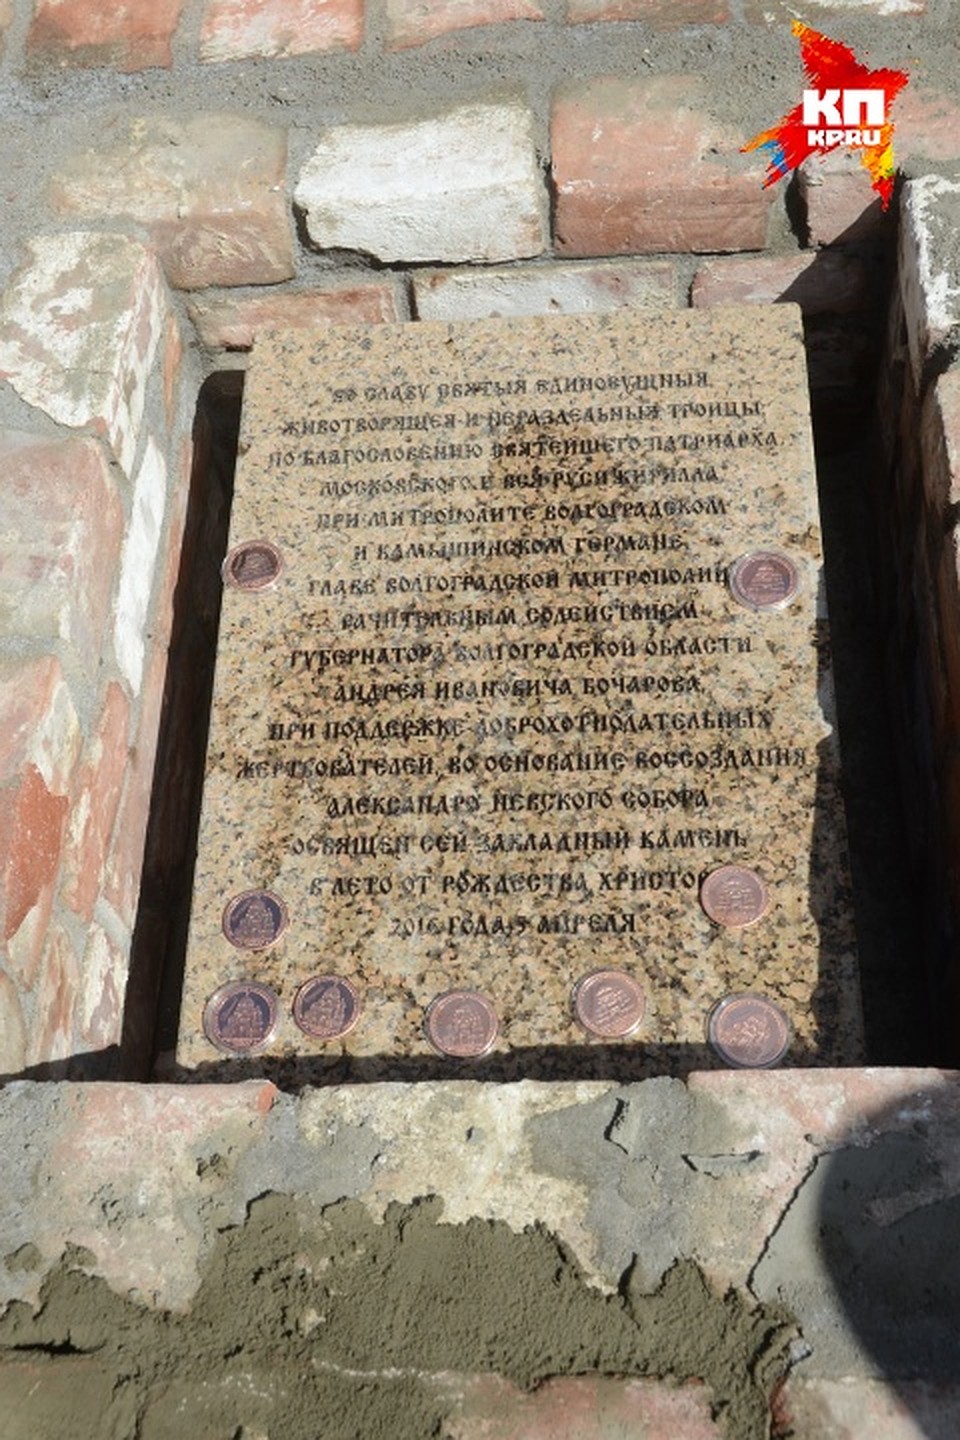 КП
KP.RU
ВО СЛАВУ СВЯТЫЯ ЕДИНОСУЩНЫЯ
ЖИВОТВОРЯЩЕЯ И НЕРАЗДЕЛЬНЫЯ ТРОИЦЫ,
ПО БЛАГОСЛОВЕНИЮ СВЯТЕЙШЕГО ПАТРИАРХА
МОСКОВСКОГО И ВСЯ РУСИ КИРИЛЛА
ПРИ МИТРОПОЛИТЕ ВОЛГОГРАДСКОМ
И КАМЫШИНСКОМ ГЕРМАНЕ,
ГЛАВЕ ВОЛГОГРАДСКОЙ МИТРОПОЛИИ
РАЧИТЕЛЬНЫМ СОДЕЙСТВИЕМ
ГУБЕРНАТОРА ВОЛГОГРАДСКОЙ ОБЛАСТИ
АНДРЕЯ ИВАНОВИЧА БОЧАРОВА,
ПРИ ПОДДЕРЖКЕ ДОБРОХОТНОДАТЕЛЬНЫХ
ЖЕРТВОВАТЕЛЕЙ, ВО ОСНОВАНИЕ ВОССОЗДАНИЯ
АЛЕКСАНДРО НЕВСКОГО СОБОРА
ОСВЯЩЕН СЕЙ ЗАКЛАДНЫЙ КАМЕНЬ
В ЛЕТО ОТ РОЖДЕСТВА ХРИСТОВ
2016 ГОДА, 5 АПРЕЛЯ